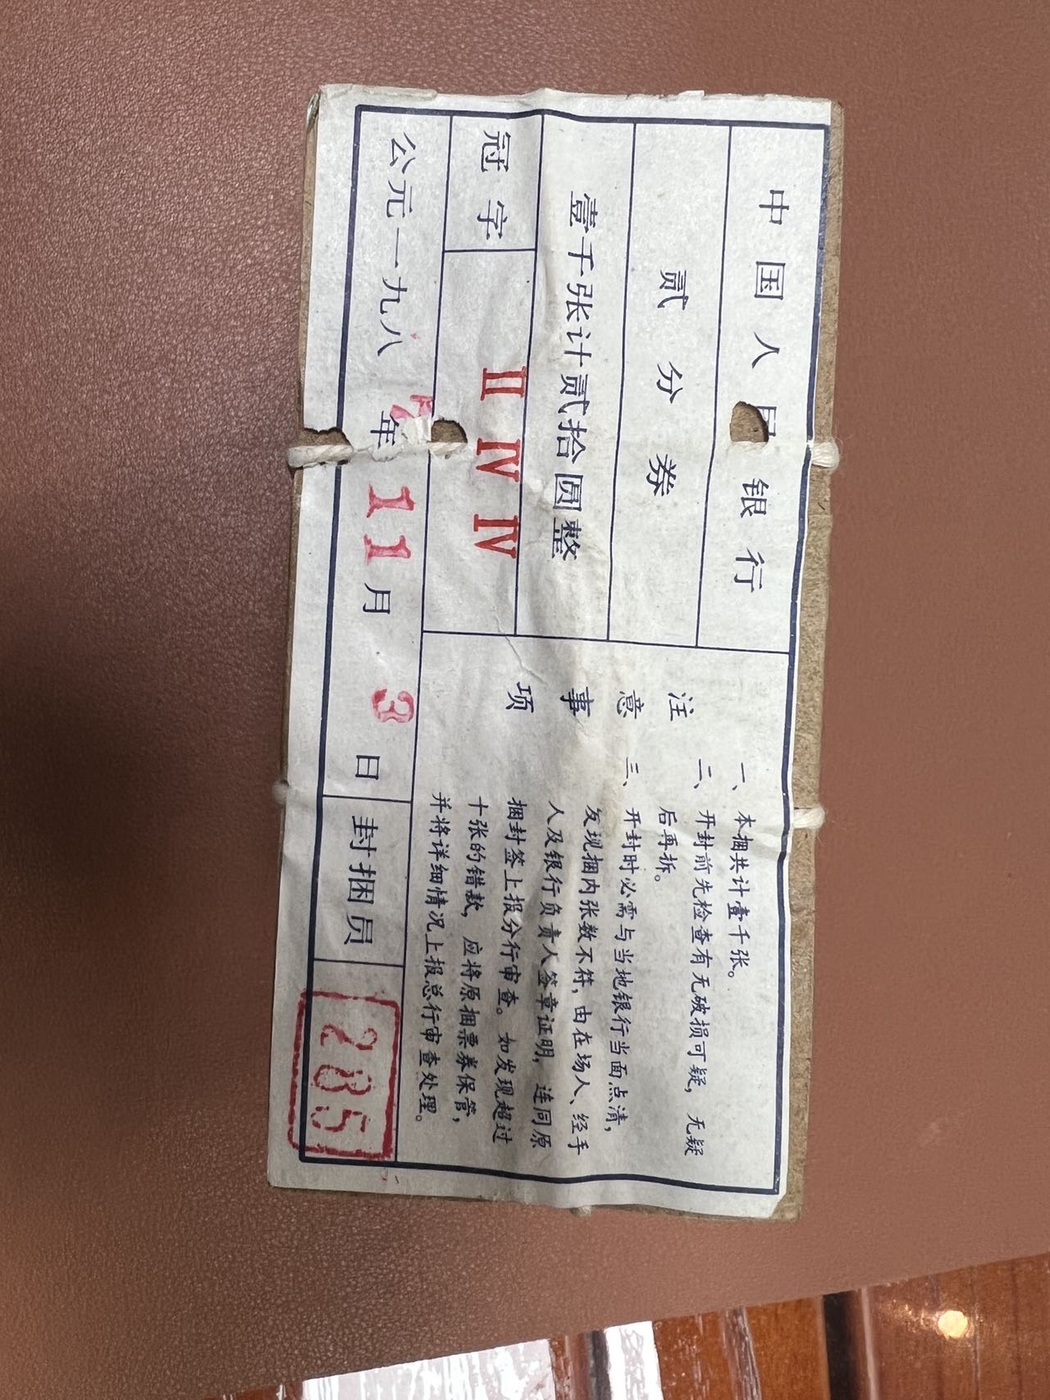 中国人民银行
贰分券
壹千张计贰拾圆整
冠字 II IV IV
公元一九八 年 11 月 3 日
封捆员 285
注意事项
一、本捆共计壹千张。
二、开封前先检查有无破损可疑，无疑
后再拆。
三、开封时必需与当地银行当面点清，
发现捆内张数不符，由在场人、经手
人及银行负责人签章证明，连同原
捆封签上报分行审查。如发现超过
十张的错款，应将原捆票券保管，
并将详细情况上报总行审查处理。